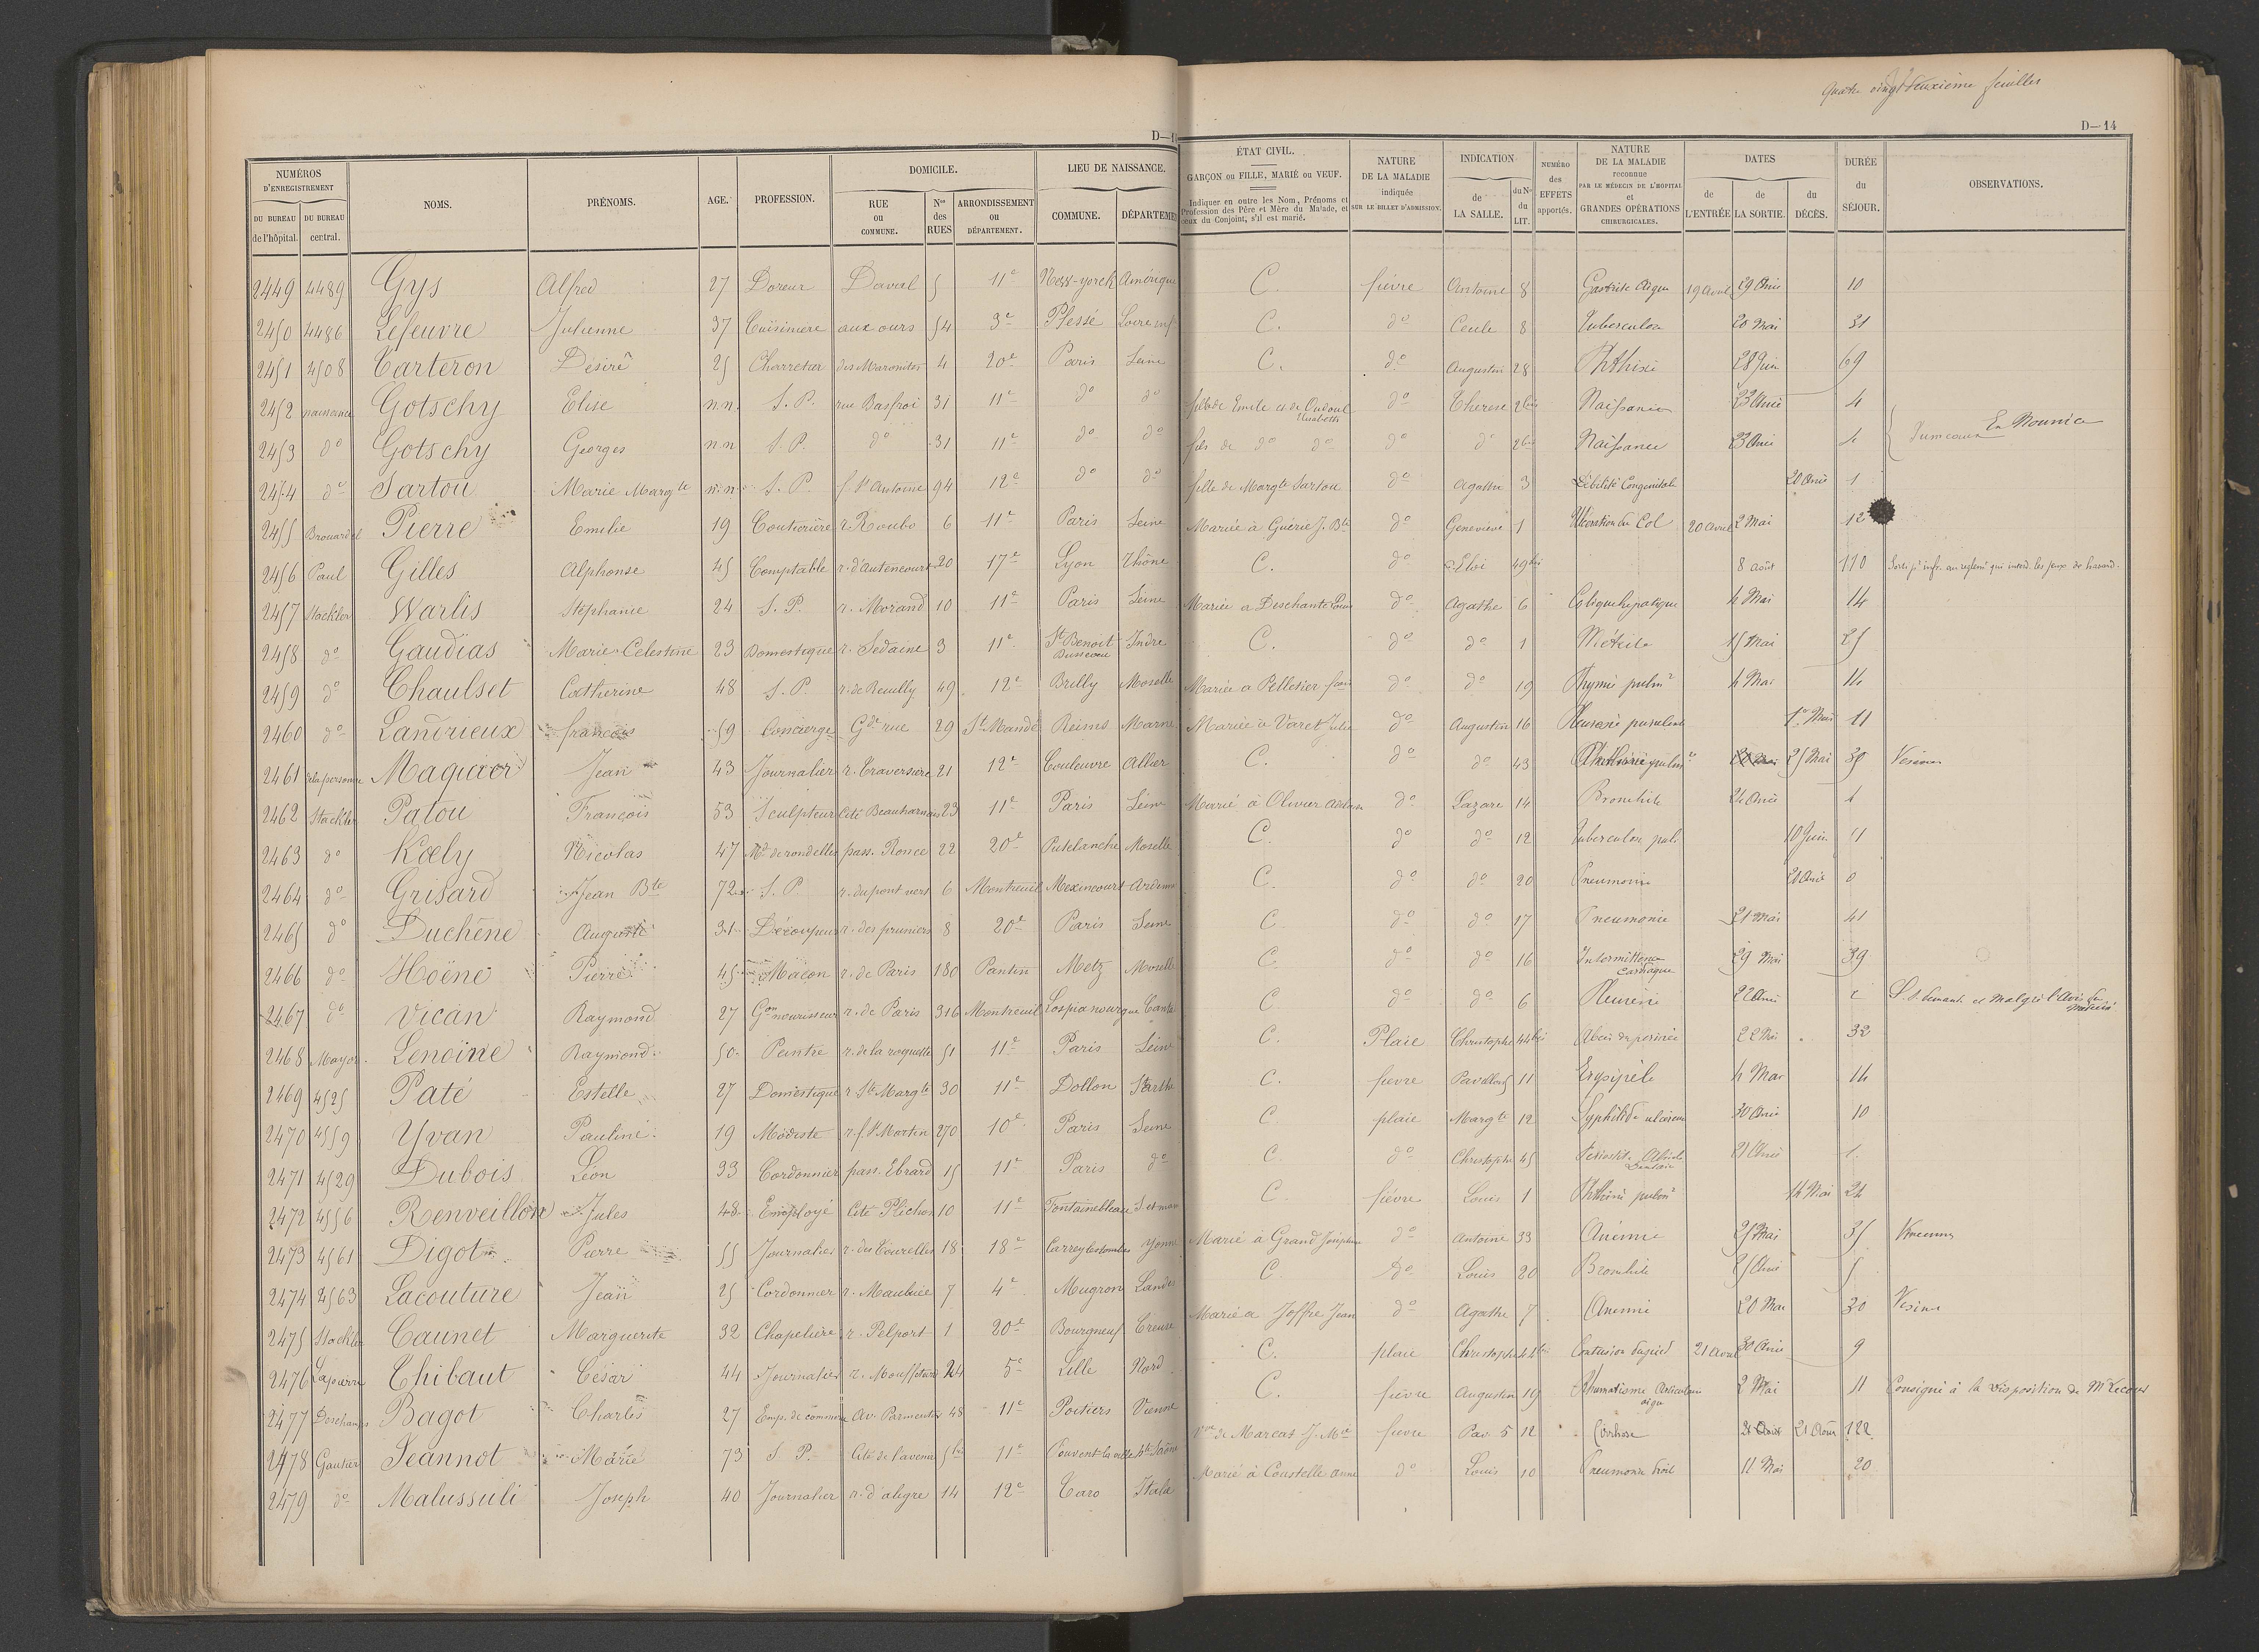 Quatre vingt deuxième feuilles
D—14
NUMÉROS D'ENREGISTREMENT
DU BUREAU de l'hôpital.
DU BUREAU central.
NOMS.
PRÉNOMS.
AGE.
PROFESSION.
DOMICILE.
RUE ou COMMUNE.
Nos des RUES
ARRONDISSEMENT ou DÉPARTEMENT.
LIEU DE NAISSANCE.
COMMUNE.
DÉPARTEMEN
ÉTAT CIVIL.
GARÇON ou FILLE, MARIÉ ou VEUF.
Indiquer en outre les Nom, Prénoms et Profession des Père et Mère du Malade, et ceux du Conjoint, s'il est marié.
NATURE DE LA MALADIE indiquée SUR LE BILLET D'ADMISSION.
INDICATION
de LA SALLE.
du No du LIT.
NUMÉRO des EFFETS apportés.
NATURE DE LA MALADIE reconnue PAR LE MÉDECIN DE L'HOPITAL et GRANDES OPÉRATIONS CHIRURGICALES.
DATES
de L'ENTRÉE
de LA SORTIE.
du DÉCÈS.
DURÉE du SÉJOUR.
OBSERVATIONS.
2449 4489 Gys Alfred 27 Doreur Daval 5 11e New-yorck Amérique C. fièvre Antoine 8 Gastrite Aigue 19 Avril 29 Avril 10
2450 4486 Lefeuvre Julienne 37 Cuisinière aux ours 54 3e Plessé Loire inf C. do Cecile 8 Tuberculose 20 Mai 31
2451 4508 Carteron Désiré 25 Charretier des Maronites 4 20e Paris Seine C. do Augustin 28 Phthisie 28 Juin 69
2452 naissance Gotschy Elise n.n. S.P. rue Basfroi 31 11e do do fille de Emile et de Oudoul Elisabeth do Therese 2bis Naissance 23 Avril 4
2453 do Gotschy Georges n.n S.P. do 31 11e do do fils de do do do do 2bis Naissance 23 Avril 4 Jumeaux En Nourrice
2454 do Sartou Marie Margte n.n. S.P. f. St Antoine 94 12e do do fille de Margte Sartou do Agathe 3 Débilité Congenitale 20 Avril 1
2455 Brouardel Pierre Emilie 19 Couturière r. Roubo 6 11e Paris Seine Mariée à Guérie J. Bte do Genevieve 1 Ulcération du Col 20 avril 2 Mai 12
2456 Paul Gilles Alphonse 45 Comptable r. d'Autencourt 20 17e Lyon Rhône C. do Eloi 49bis 8 août 110 Sorti pr infr. au reglemt qui interd. les jeux de hasard.
2457 Stackler Warlis Stéphanie 24 S.P. r. Morand 10 11e Paris Seine Mariée a Deschante do Agathe 6 Colique hepatique 4 Mai 14
2458 do Gaudias Marie Celestine 23 Domestique r. Sedaine 3 11e St Benoit Indre C. do do 1 Métrite 15 Mai 25
2459 do Chaulset Catherine 48 S.P. r. de Reuilly 49 12e Brilly Moselle Mariée a Pelletier do do 19 Phymie pulmre 4 Mai 14
2460 do Landrieux françois 59 Concierge Gde rue 29 St Mandé Reims Marne Mariée à Varet Julie do Augustin 16 Pleurésie purulente 1er Mai 11
2461 Jean 43 Journalier r. Traversière 21 12e Couleuvre Allier C. do do 43 25 Mai Vesinet
2462 Stackler Patou François 53 Sculpteur Cité Beauharnais 23 11e Paris Seine Marié à Olivier do Lazare 14 Bronchite 24 Avril 4
2463 do Kœly Nicolas 47 Md de rondelles pass. Ronce 22 20e Putelanche Moselle C. do do 12 Tuberculose pul. 10 Juin
2464 do Grisard Jean Bte 72 S.P r. du pont vert 6 Montreuil Mexincourt Ardenne C. do do 20 Pneumonie 20 Avril 0
2465 do Duchêne Auguste 31 Découpeur r. des pruniers 8 20e Paris Seine C. do do 17 Pneumonie 21 Mai 41
2466 do Hoëne Pierre 45 Maçon r. de Paris 180 Pantin Metz Moselle C. do do 16 Intermittence Cardiaque 29 Mai 39
2467 do Vican Raymond 27 Gon nourisseur r. de Paris 316 Montreuil C do do 6 Pleurésie 22 Avril 2 S.S. demande et malgré l'avis du médecin
2468 Mayor Lenoine Raymond 50 Peintre r. de la roquette 51 11e Paris Seine C. Plaie Christophe 44bis Abcès du périnée 22 Mai 32
2469 4525 Paté Estelle 27 Domestique r. Ste Margte 30 11e Dollon Sarthe C. fievre Pavillon 5 11 Erysipèle 4 Mai 14
2470 4559 Yvan Pauline 19 Modiste r. f. St Martin 270 10e Paris Seine C plaie Margte 12 Syphilide 30 Avril 10
2471 4529 Dubois Léon 33 Cordonnier pass. Ebrard 15 11e Paris do C do Christophe 45 Periostite 21 Avril 1
2472 4556 Renveillon Jules 48 Employé Cité Plichon 10 11e Fontainebleau S. et marne C. fièvre Louis 1 Phthisie pulmre 14 Mai 24
2473 4561 Digot Pierre 55 Journalier r. des Tourelles 18 18e Carreylestombes Yonne Marié à Grand Joséphine do Antoine 33 Anémie 25 Mai 35 Vincennes
2474 4563 Lacouture Jean 25 Cordonnier r. Maubuée 7 4e Mugron Landes C do Louis 20 Bronchite 25 Avril 5
2475 Stackler Caunet Marguerite 32 Chapelière r. Pelport 1 20e Bourgneuf Creuse Mariée a Joffre Jean do Agathe 7 Anémie 20 Mai 30 Vesinet
2476 Thibaut César 44 Journalier r. Mouffetard 24 5e Lille Nord C. plaie Christophe 44bis Contusion du pied 21 Avril 30 Avril 9
2477 Deschamps Bagot Charles 27 Emp. de commerce Av. Parmentier 48 11e Poitiers Vienne C. fièvre Augustin 19 Rhumatisme Articulaire aigu 2 Mai 11 Consigné à la disposition de Mr Lecour
2478 Gautier Jeannot Marie 73 S P. Cité de l'avenir 5bis 11e Pouvent la ville Hte Saône Vve de Marcat J. Mie fievre Pav 5 12 Cirrhose 21 Août 122
2479 do Malussuli Joseph 40 Journalier r. d'aligre 14 12e Taro Italie Marié à Coustelle anne do Louis 10 Pneumonie droite 11 Mai 20